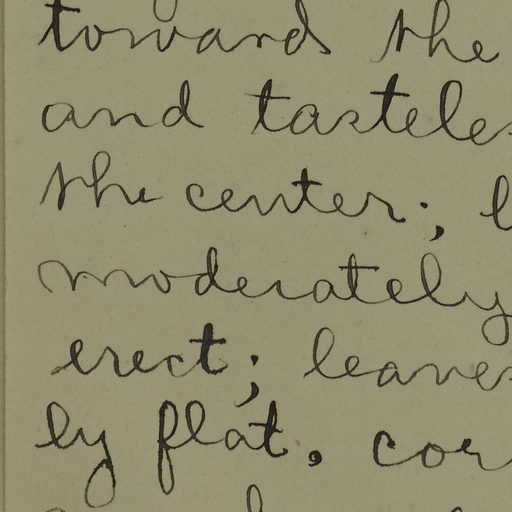 towards the
and tasteles
the center; l
moderately
erect; leaves
ly flat, cor